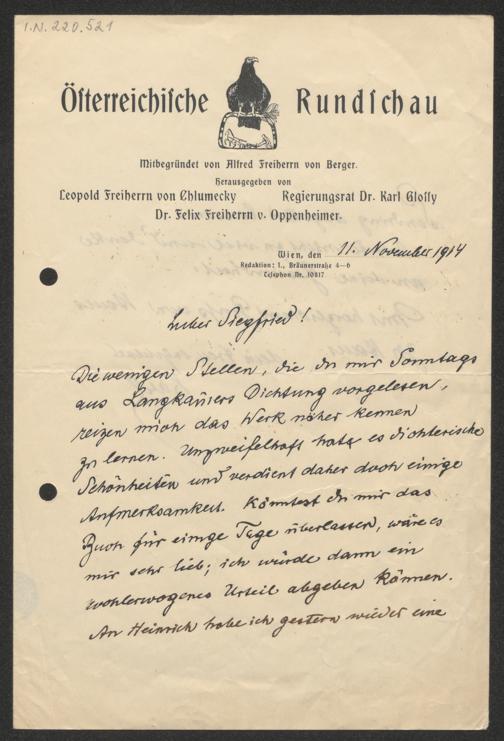 I.N. 220.521
Öſterreichiſche Rundſchau
Mitbegründet von Alfred Freiherrn von Berger.
Herausgegeben von
Leopold Freiherrn von Chlumecky Regierungsrat Dr. Karl Gloſſy
Dr. Felix Freiherrn v. Oppenheimer.
Wien, den 11. November 1914
Redaktion: I., Bräunerstraße 4—6
Telephon Nr. 10817
Lieber Siegfried!
Die wenigen Stellen, die du mir Sonntags
aus Langkaniers Dichtung vorgelesen,
reizen mich das Werk näher kennen
zu lernen. Unzweifelhaft hat es dichterische
Schönheiten und verdient daher doch einige
Aufmerksamkeit. Könntest du mir das
Buch für einige Tage überlassen, wäre es
mir sehr lieb; ich würde dann ein
wohlerwogenes Urteil abgeben können.
An Heinrich habe ich gestern wieder eine